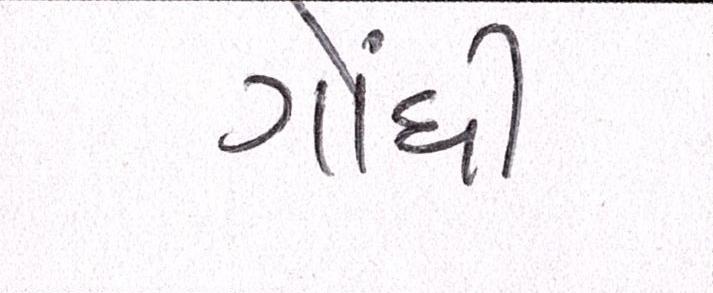 ગોંધી